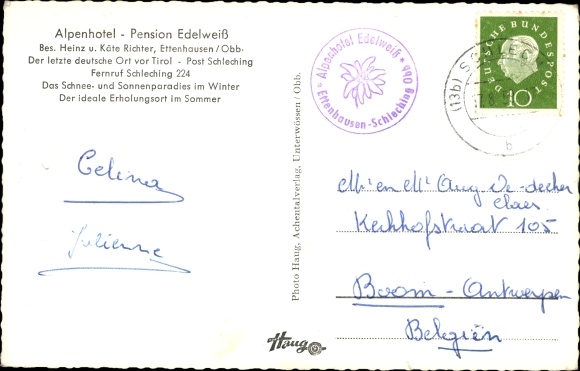 Alpenhotel - Pension Edelweiß
Bes. Heinz u. Käte Richter, Ettenhausen/Obb.
Der letzte deutsche Ort vor Tirol - Post Schleching
Fernruf Schleching 224
Das Schnee- und Sonnenparadies im Winter
Der ideale Erholungsort im Sommer
Celina
Julienne
Photo Haug, Achentalverlag, Unterwössen / Obb.
Haug
Alpenhotel Edelweiß * Ettenhausen-Schleching Obb *
DEUTSCHE BUNDESPOST
10
(13b) SCHLECHING
b
Mr en Me Aug De-decker
Claes
Kerkhofstraat 105
Boom - Antwerpen
Belgiën